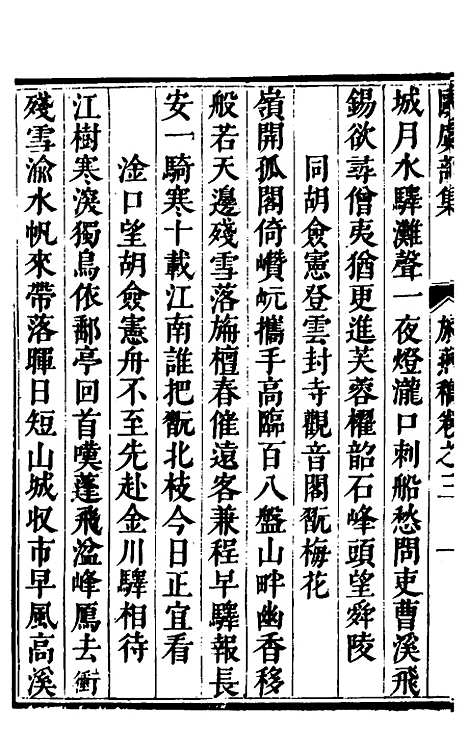 城月水驛灘聲一夜燈瀧口刺船愁問吏曹溪飛
錫欲尋僧夷猶更進芙蓉櫂韶石峰頭望舜陵
同胡僉憲登雲封寺觀音閣翫梅花
嶺開孤閣倚巑岏攜手高臨百八盤山畔幽香移
般若天邊殘雪落旃檀春催遠客兼程早驛報長
安一騎寒十載江南誰把翫北枝今日正宜看
淦口望胡僉憲舟不至先赴金川驛相待
江樹寒深獨鳥依鄱亭回首嘆蓬飛湓峰鴈去衝
殘雪渝水帆來帶落暉日短山城收市早風高溪